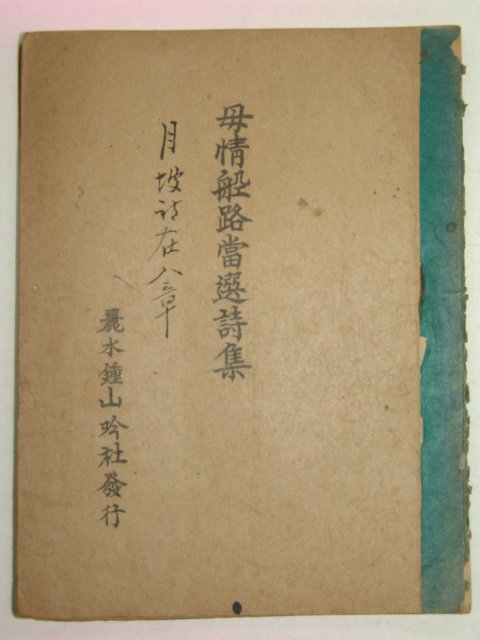 母情船路當選詩集
月坡詩在八三草
麗水鍾山吟社發行